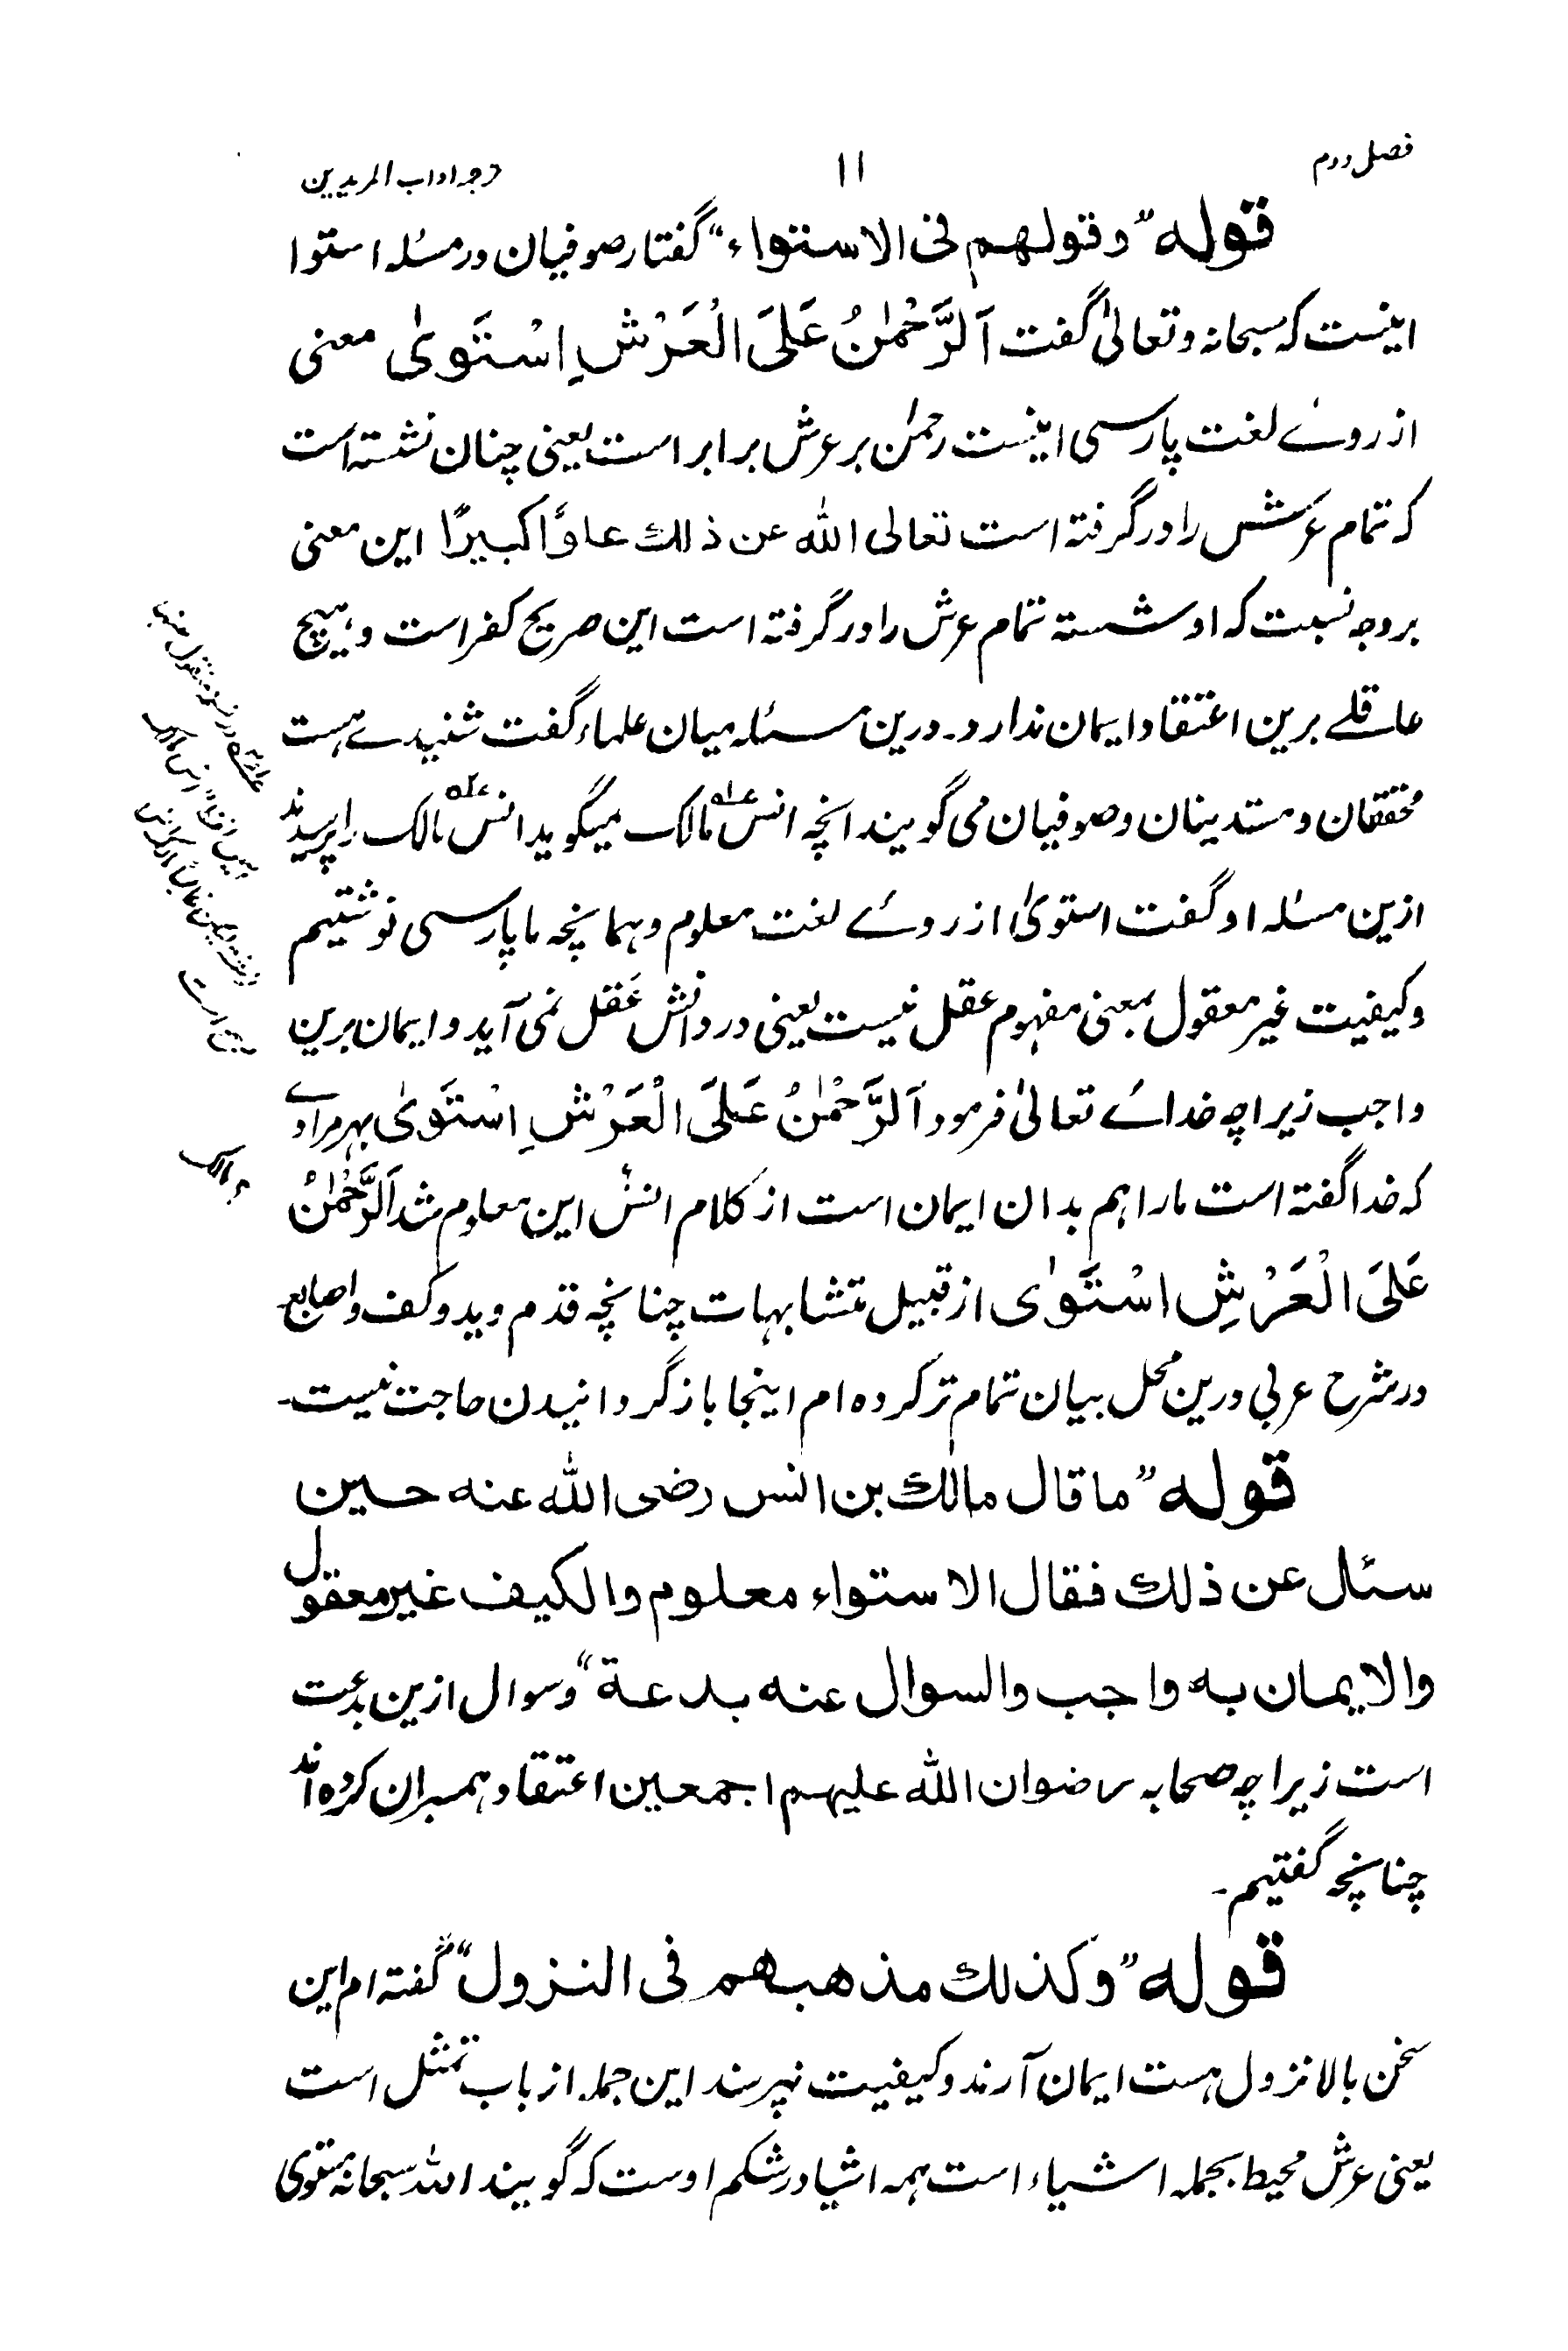 فصل دوم
۱۱
ترجمہ اداب المریدین
قوله "وقولهم فی الاستواء" گفتار صوفیان در مسئلہ استوا
اینست کہ سبحانہ وتعالیٰ گفت اَلرَّحْمٰنُ عَلَی الْعَرْشِ اسْتَویٰ معنی
از روئے لغت پارسی اینست رحمٰن بر عرش برابر است یعنی چنان نشستہ است
کہ تمام عرش را در گرفتہ است تعالی اللہ عن ذلك علوًا کبیرًا این معنی
بر وجہ نسبت کہ او شستہ تمام عرش را در گرفتہ است این صریح کفر است و ہیچ
عاقلے برین اعتقاد و ایمان ندارد۔ درین مسئلہ میان علماء گفت شنیدے ہست
محققان و متدینان و صوفیان می گویند انچہ انس مالک میگوید انس مالک را پرسیدند
ازین مسئلہ او گفت استویٰ از روئے لغت معلوم و ہمانچہ ما پارسی نوشتیم
و کیفیت غیر معقول بمعنی مفہوم عقل نیست یعنی در دانش عقل نمی آید و ایمان برین
واجب زیراچہ خدائے تعالیٰ فرمود اَلرَّحْمٰنُ عَلَی الْعَرْشِ اسْتَویٰ بہر مرادے
کہ خدا گفتہ است مارا ہم بدان ایمان است از کلام انسؓ این معلوم شد اَلرَّحْمٰنُ
عَلَی الْعَرْشِ اسْتَوٰی از قبیل متشابہات چنانچہ قدم و ید و کف و اصابع۔
در شرح عربی درین محل بیان تمام تر کردہ ام اینجا باز گردانیدن حاجت نیست۔
قوله "ما قال مالك بن انس رضی اللہ عنه حین
سئل عن ذلك فقال الاستواء معلوم والکیف غیر معقول
والایمان به واجب والسوال عنه بدعة" و سوال ازین بدعت
است زیراچہ صحابہ رضوان اللہ علیہم اجمعین اعتقاد ہمبران کردہ اند
چنانچہ گفتیم۔
قوله "وکذلك مذهبهم فی النزول" گفتہ ام این
سخن بالا نزول ہست ایمان آرند و کیفیت نپرسند این جملہ از باب تمثل است
یعنی عرش محیط بجملہ اشیاء است ہمہ اشیا در شکم اوست کہ گویند اللہ سبحانہ مستوی